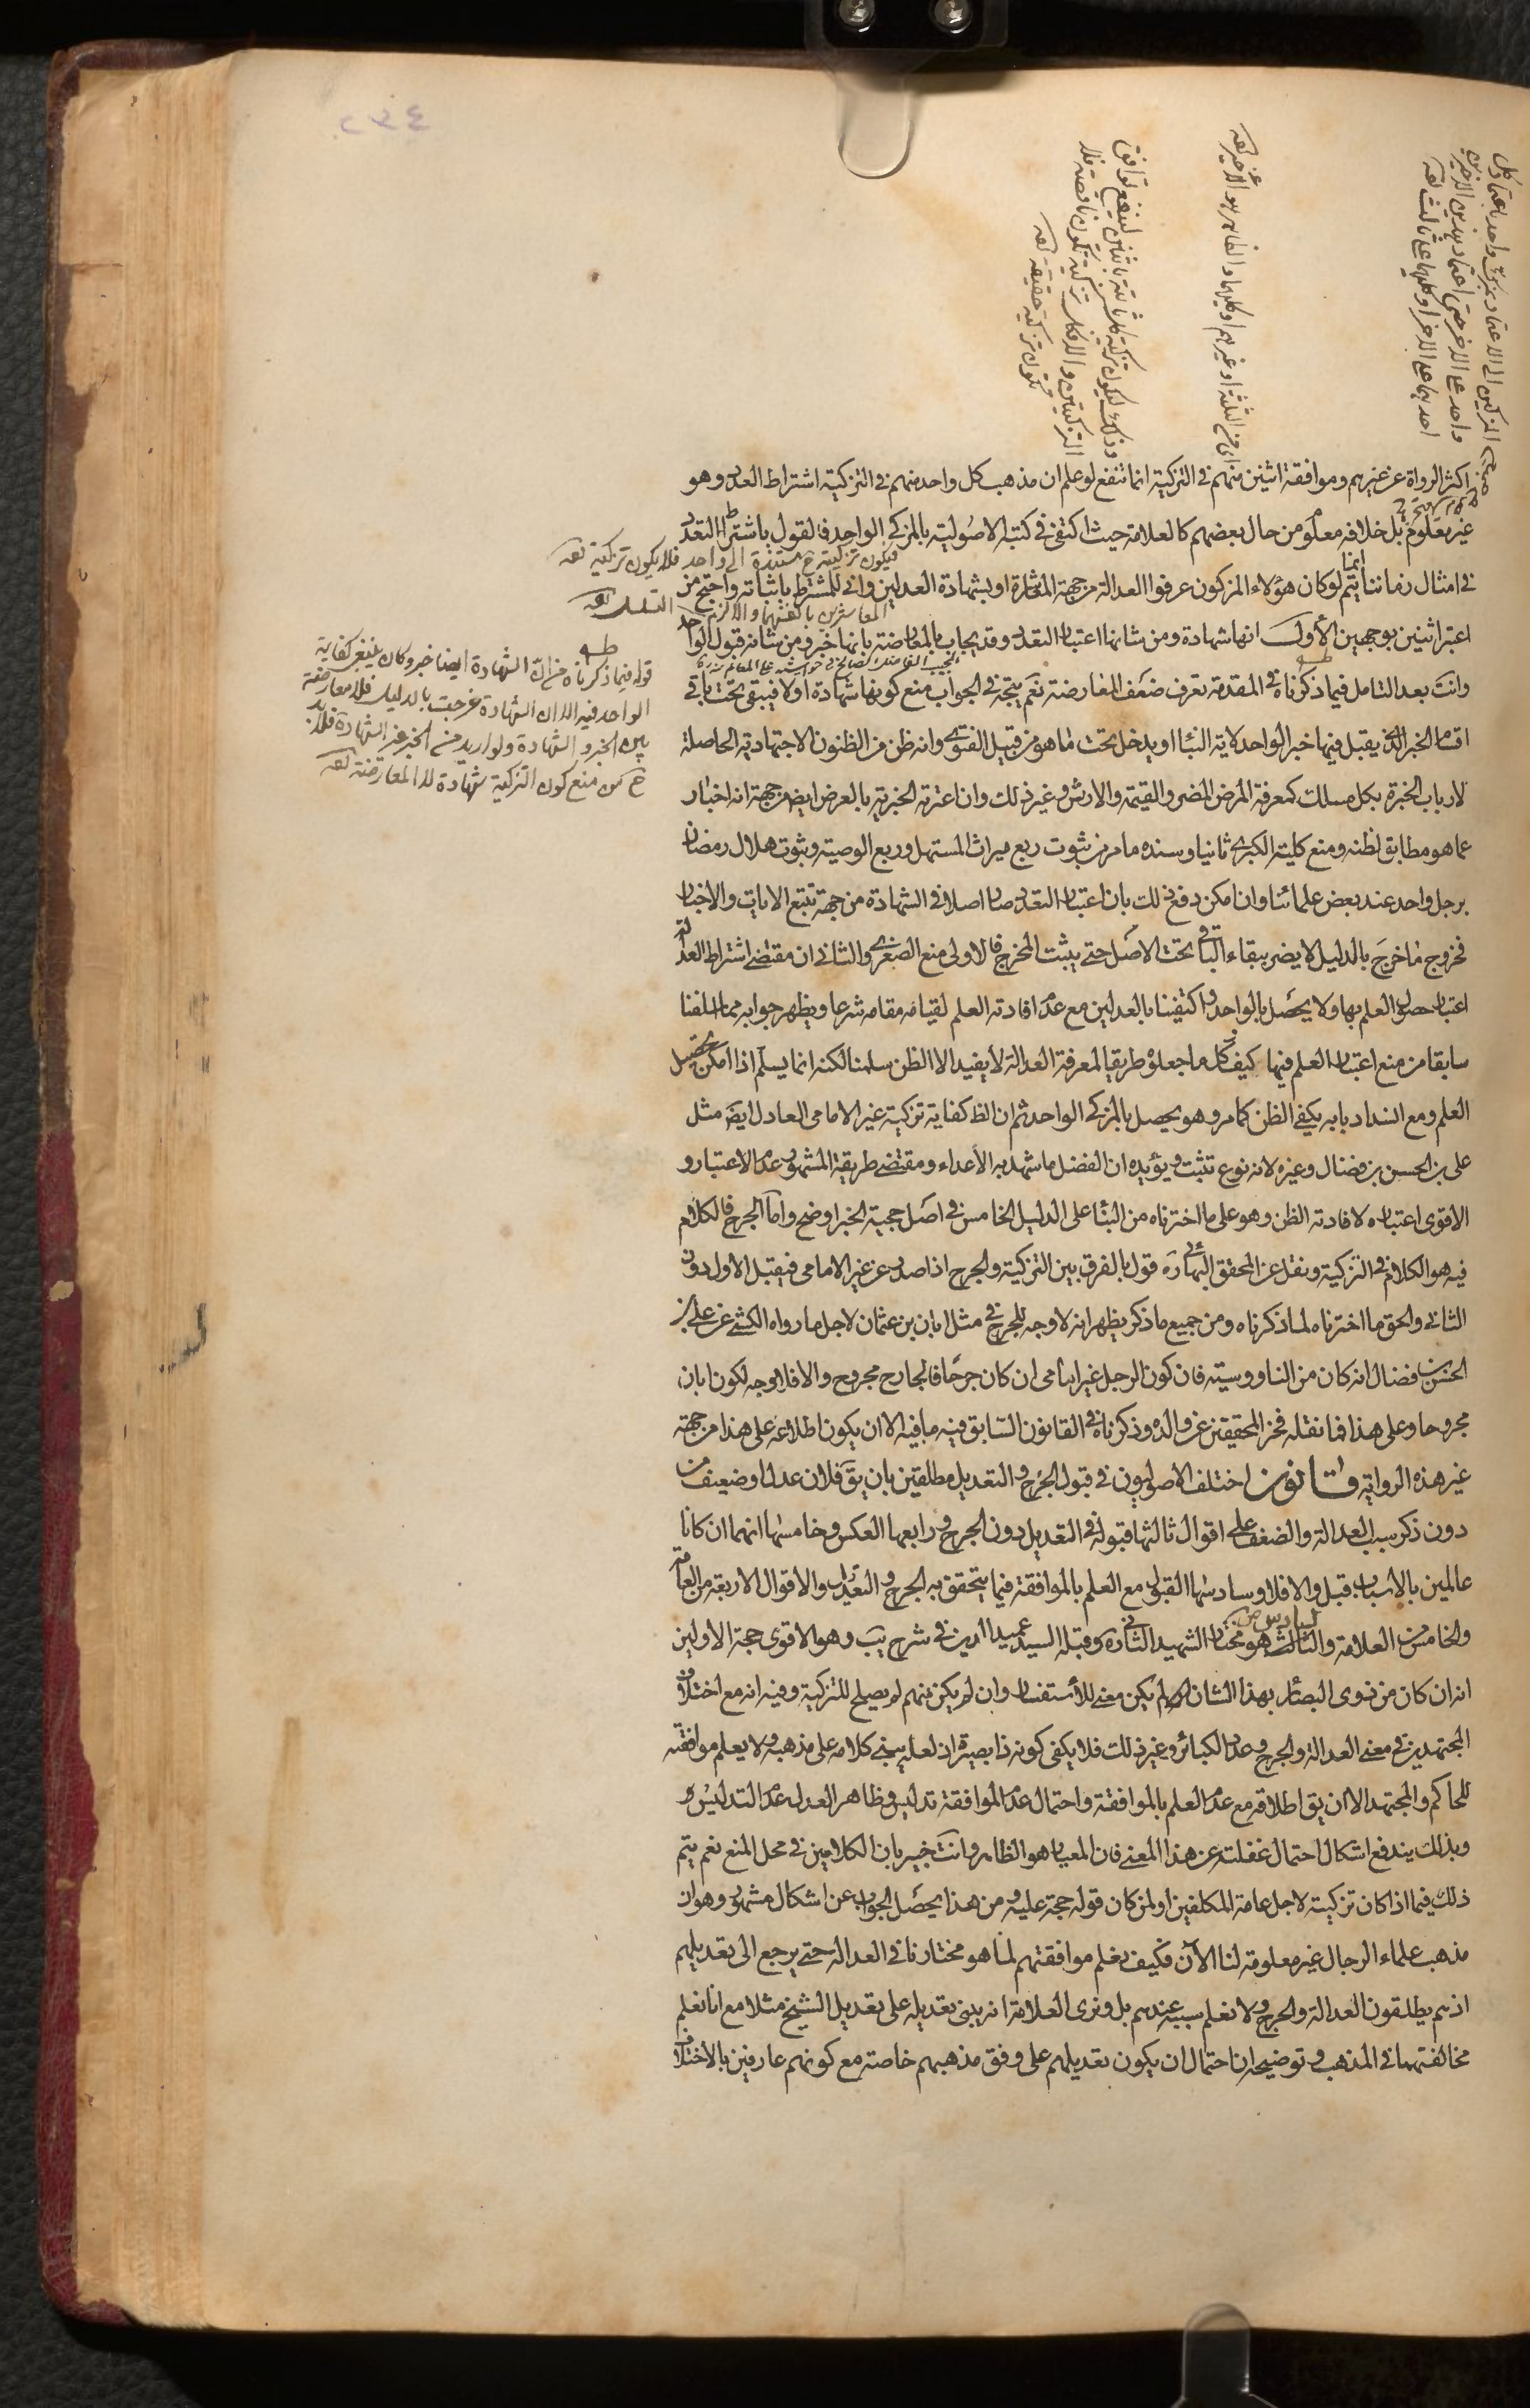 اكثر الرواة عن غيرهم وموافقة اثنين منهم فى التزكية انما تنفع لو علم ان مذهب كل واحد منهم فى التزكية اشتراط العدد وهو
غير معلوم بل خلافه معلوم من حال بعضهم كالعلامة حيث اكتفى فى كتبه الاصولية بالمزكى الواحد فالقول باشتراط التعدد
فى امثال زماننا انما يتم لو كان هؤلاء المزكون عرفوا العدالة من جهة المعاشرة او بشهادة العدلين وانى للمشترط باثباته واحتج من
اعتبر اثنين بوجهين الأول انها شهادة ومن شانها اعتبار التعدد وقد يجاب بالمعارضة بانها خبر ومن شانه قبول الواحد
وانت بعد التامل فيما ذكرناه فى المقدمة تعرف ضعف المعارضة نعم يتجه فى الجواب منع كونها شهادة اولا فيبقى تحت باقى
اقسام الخبر الذى يقبل فيها خبر الواحد لاية النبأ او يدخل تحت ما هو من قبيل الفتوى وانه ظن من الظنون الاجتهادية الحاصلة
لارباب الخبرة بكل مسلك كمعرفة المرض المضر والقيمة والارش وغير ذلك وان اعترته الخبرية بالعرض ايضا من جهة انه اخبار
عما هو مطابق لظنه ومنع كلية الكبرى ثانيا وسنده ما مر من ثبوت ربع ميراث المستهل وربع الوصية وثبوت هلال رمضان
برجل واحد عند بعض علمائنا وان امكن دفع ذلك بان اعتبار التعدد صار اصلا فى الشهادة من جهة تتبع الايات والاخبار
فخروج ما خرج بالدليل لا يضر ببقاء الباقى تحت الاصل حتى يثبت المخرج فالاولى منع الصغرى والثانى ان مقتضى اشتراط العدالة
اعتبار حصول العلم بها ولا يحصل بالواحد واكتفينا بالعدلين مع عدم افادته العلم لقيامه مقامه شرعا ويظهر جوابه مما اسلفنا
سابقا من منع اعتبار العلم فيها كيف وكل ما جعلوه طريقا لمعرفة العدالة لا يفيد الا الظن سلمنا لكنه انما يسلم اذا امكن تحصيل
العلم ومع انسداد بابه يكفى الظن كما مر وهو يحصل بالمزكى الواحد ثم ان الظ كفاية تزكية غير الامامى العادل ايضا مثل
على بن الحسن بن فضال وغيره لانه نوع تثبت ويؤيده ان الفضل ما شهد به الأعداء ومقتضى طريقة المشهور عدم الاعتبار و
الاقوى اعتباره لافادته الظن وهو على ما اخترناه من البناء على الدليل الخامس فى اصل حجية الخبر اوضح واما الجرح فالكلام
فيه هو الكلام فى التزكية ونقل عن المحقق البهائى ره قول بالفرق بين التزكية والجرح اذا صدر عن غير الامامى فيقبل الاول دون
الثانى والحق ما اخترناه لما ذكرناه ومن جميع ما ذكر يظهر انه لا وجه للجرح فى مثل ابان بن عثمان لاجل ما رواه الكشى عن على بن
الحسن بن فضال انه كان من الناووسية فان كون الرجل غير امامى ان كان جرحا فالجارح مجروح والا فلا وجه لكون ابان
مجروحا وعلى هذا فما نقله فخر المحققين عن والده وذكرناه فى القانون السابق فيه ما فيه الا ان يكون اطلاعه على هذا من جهة
غير هذه الرواية قانون اختلف الاصوليون فى قبول الجرح والتعديل مطلقين بان يق فلان عدل او ضعيف من
دون ذكر سبب العدالة والضعف على اقوال ثالثها قبوله فى التعديل دون الجرح ورابعها العكس وخامسها انهما ان كانا
عالمين بالاسباب قبل والا فلا وسادسها القبول مع العلم بالموافقة فيما يتحقق به الجرح والتعديل والاقوال الاربعة من العامة
والخامس من العلامة والسادس هو مختار الشهيد الثانى ره وقبله السيد عميد الدين فى شرح يب وهو الاقوى حجة الاولين
انه ان كان من ذوى البصائر بهذا الشان لم يكن معنى للأستفسار وان لم يكن منهم لم يصلح للتزكية وفيه انه مع اختلاف
المجتهدين فى معنى العدالة والجرح وعدد الكبائر وغير ذلك فلا يكفى كونه ذا بصيرة اذ لعله يبنى كلامه على مذهبه ولا يعلم موافقته
للحاكم والمجتهد الا ان يق اطلاقه مع عدم العلم بالموافقة واحتمال عدم الموافقة تدليس وظاهر العدل عدم التدليس و
وبذلك يندفع اشكال احتمال غفلته عن هذا المعنى فان المعيار هو الظاهر وانت خبير بان الكلامين فى محل المنع نعم يتم
ذلك فيما اذا كان تزكيته لاجل عامة المكلفين او لمن كان قوله حجة عليه ومن هذا يحصل الجواب عن اشكال مشهور وهو ان
مذهب علماء الرجال غير معلومة لنا الآن فكيف نعلم موافقتهم لما هو مختارنا فى العدالة حتى يرجع الى تعديلهم
اذ هم يطلقون العدالة والجرح ولا نعلم سببه عندهم بل ونرى العلامة انه يبنى تعديله على تعديل الشيخ مثلا مع انا نعلم
مخالفتهما فى المذهب وتوضيحه ان احتمال ان يكون تعديلهم على وفق مذهبهم خاصة مع كونهم عارفين بالاختلاف
فيكون تزكيته ح مستندة الى واحد فلا يكون تزكية
قوله فيما ذكرناه من ان الشهادة ايضا خبر وكان ينبغى كفاية
الواحد فيه الا ان الشهادة خرجت بالدليل فلا معارضة
بين الخبر والشهادة ولو اريد من الخبر غير الشهادة فلا بد
ح من منع كون التزكية شهادة لا المعارضة
اى من الثلثة او غيرهم او كليهما والظاهر هو الاخير
٢٣٤